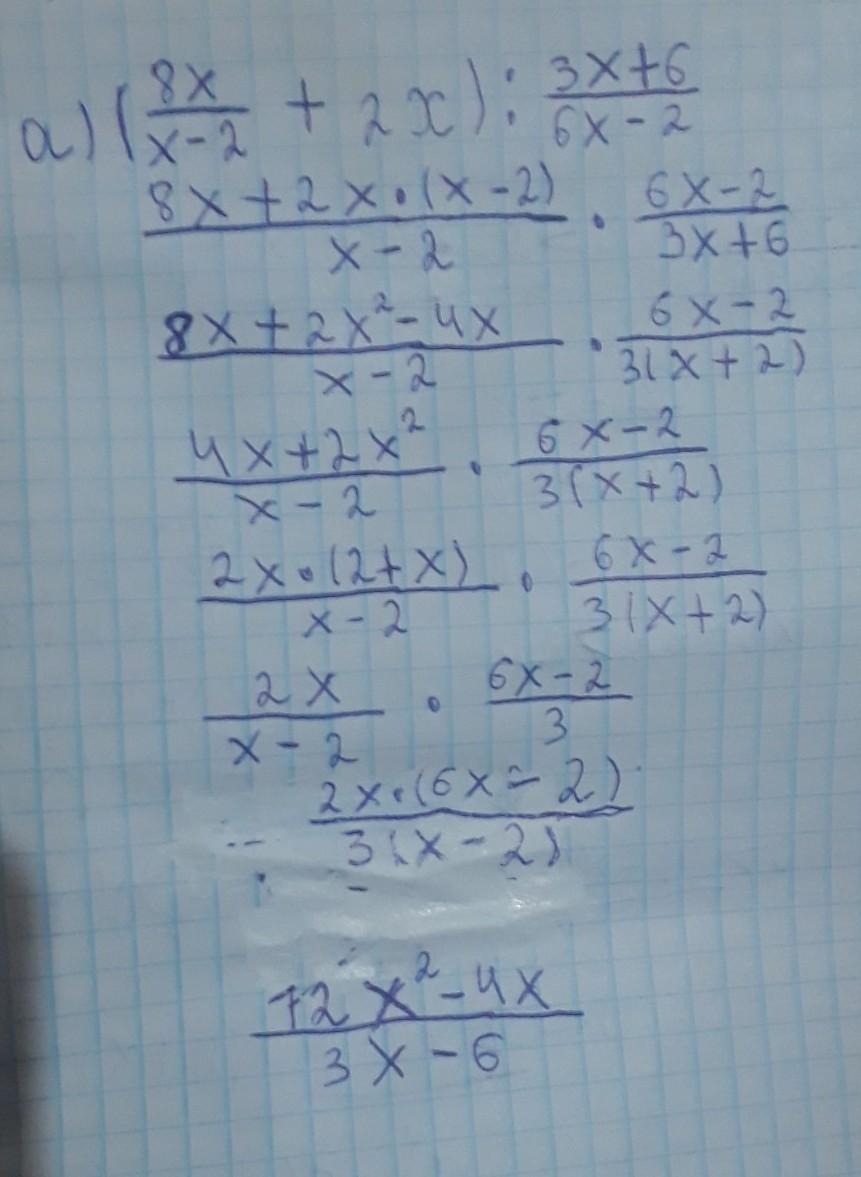 а) (8x/(x-2) + 2x) : (3x+6)/(6x-2)
(8x+2x·(x-2))/(x-2) · (6x-2)/(3x+6)
(8x+2x²-4x)/(x-2) · (6x-2)/(3(x+2))
(4x+2x²)/(x-2) · (6x-2)/(3(x+2))
(2x·(2+x))/(x-2) · (6x-2)/(3(x+2))
2x/(x-2) · (6x-2)/3
(2x·(6x-2))/(3(x-2))
(12x²-4x)/(3x-6)